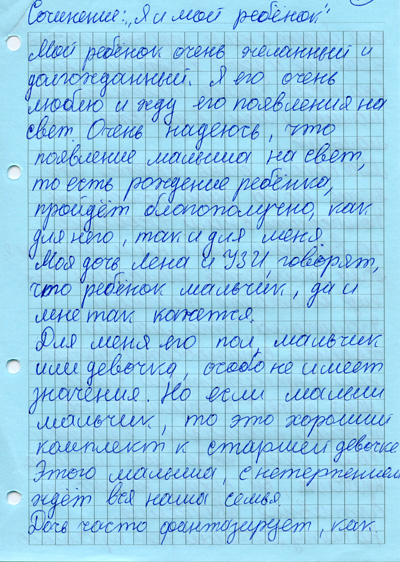 Сочинение: „Я и мой ребёнок"
Мой ребёнок очень желанный и
долгожданный. Я его очень
люблю и жду его появления на
свет. Очень надеюсь, что
появление малыша на свет,
то есть рождение ребёнка,
пройдёт благополучно, как
для него, так и для меня.
Моя дочь Лена и УЗИ, говорят,
что ребёнок мальчик, да и
мне так кажется.
Для меня его пол, мальчик
или девочка, особо не имеет
значения. Но если малыш
мальчик, то это хороший
комплект к старшей девочке.
Этого малыша, с нетерпением
ждёт вся наша семья.
Дочь часто фантазирует, как